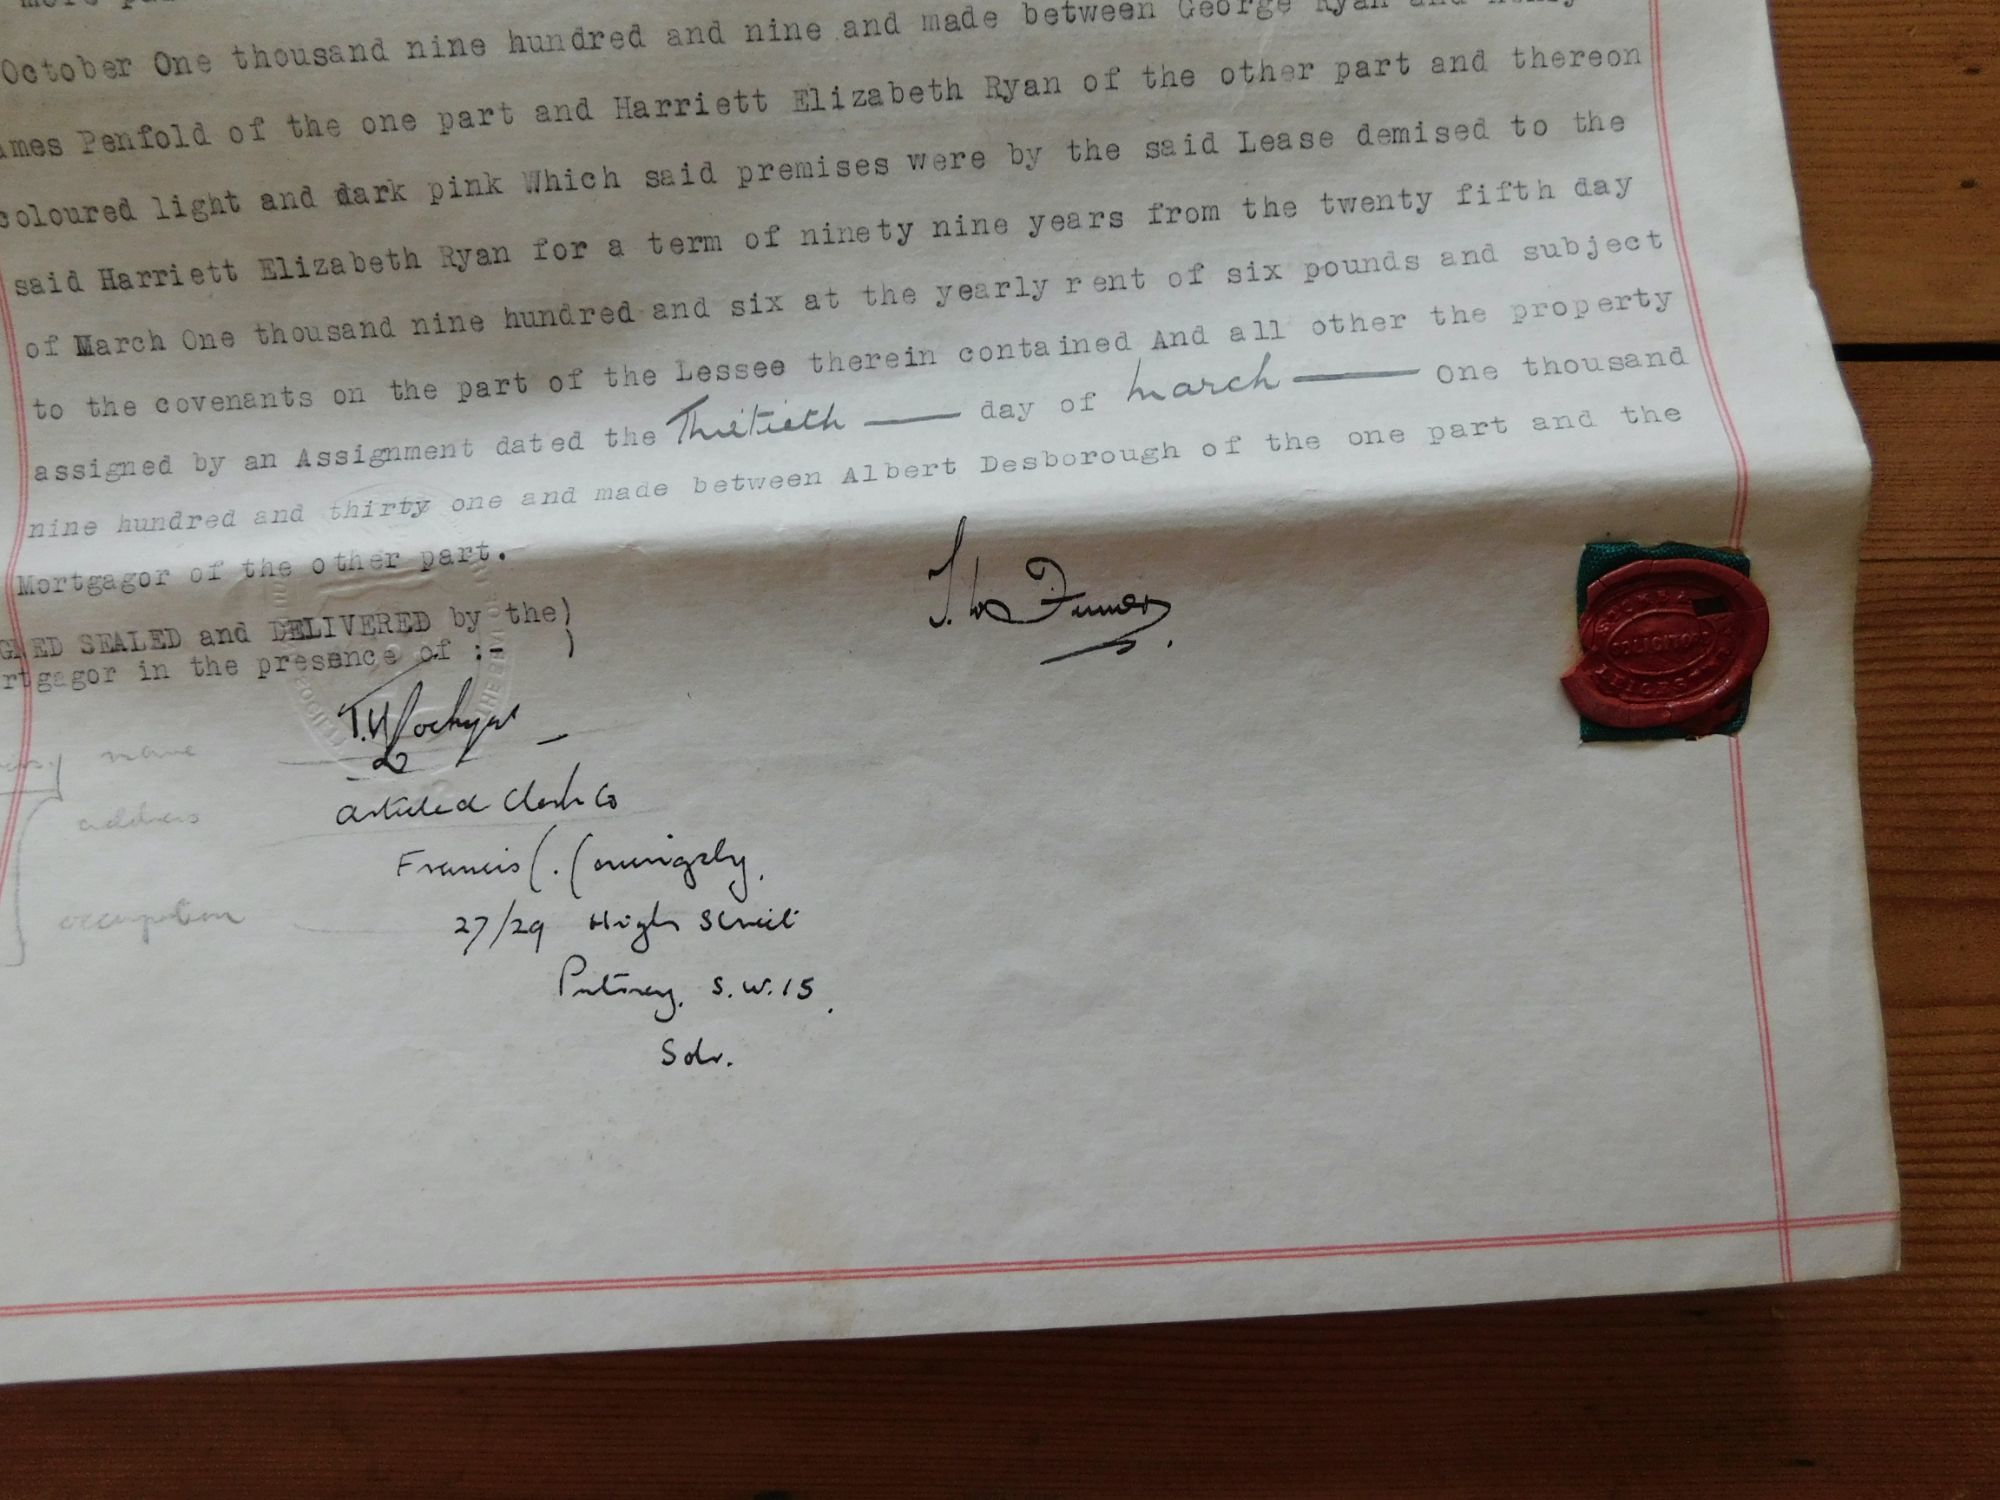 October One thousand nine hundred and nine and made between George Ryan and Henry
James Penfold of the one part and Harriett Elizabeth Ryan of the other part and thereon
coloured light and dark pink Which said premises were by the said Lease demised to the
said Harriett Elizabeth Ryan for a term of ninety nine years from the twenty fifth day
of March One thousand nine hundred and six at the yearly rent of six pounds and subject
to the covenants on the part of the Lessee therein contained And all other the property
assigned by an Assignment dated the Thirtieth day of March One thousand
nine hundred and thirty one and made between Albert Desborough of the one part and the
Mortgagor of the other part.
SIGNED SEALED and DELIVERED by the)
Mortgagor in the presence of :- )
name
address
occupation
Articled Clerk to
Francis C.
27/29 High Street
Putney. S.W.15.
Solr.
SOLICITOR